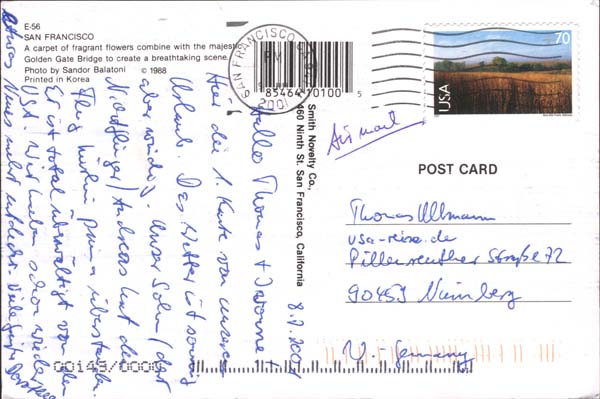 E-56
SAN FRANCISCO
A carpet of fragrant flowers combine with the majestic
Golden Gate Bridge to create a breathtaking scene.
Photo by Sandor Balatoni © 1988
Printed in Korea
SAN FRANCISCO CA
PM
2001
85464 10100 5
70
USA
Smith Novelty Co.,
460 Ninth St. San Francisco, California
Air mail
POST CARD
Thomas Ullmann
usa-reise.de
Pillenreuther Straße 72
90459 Nürnberg
Germany
8.7.2001
Hallo Thomas +
Hier die 1. Karte von unserem
Urlaub. Das Wetter ist sonnig
aber windig. Unser Sohn (der
Nordflieger) Andreas hat den
Flug hierhin prima überstanden.
Er ist total überwältigt von den
USA. Wir haben schon wieder
etwas Neues entdeckt. Viele Grüße
00149/0000